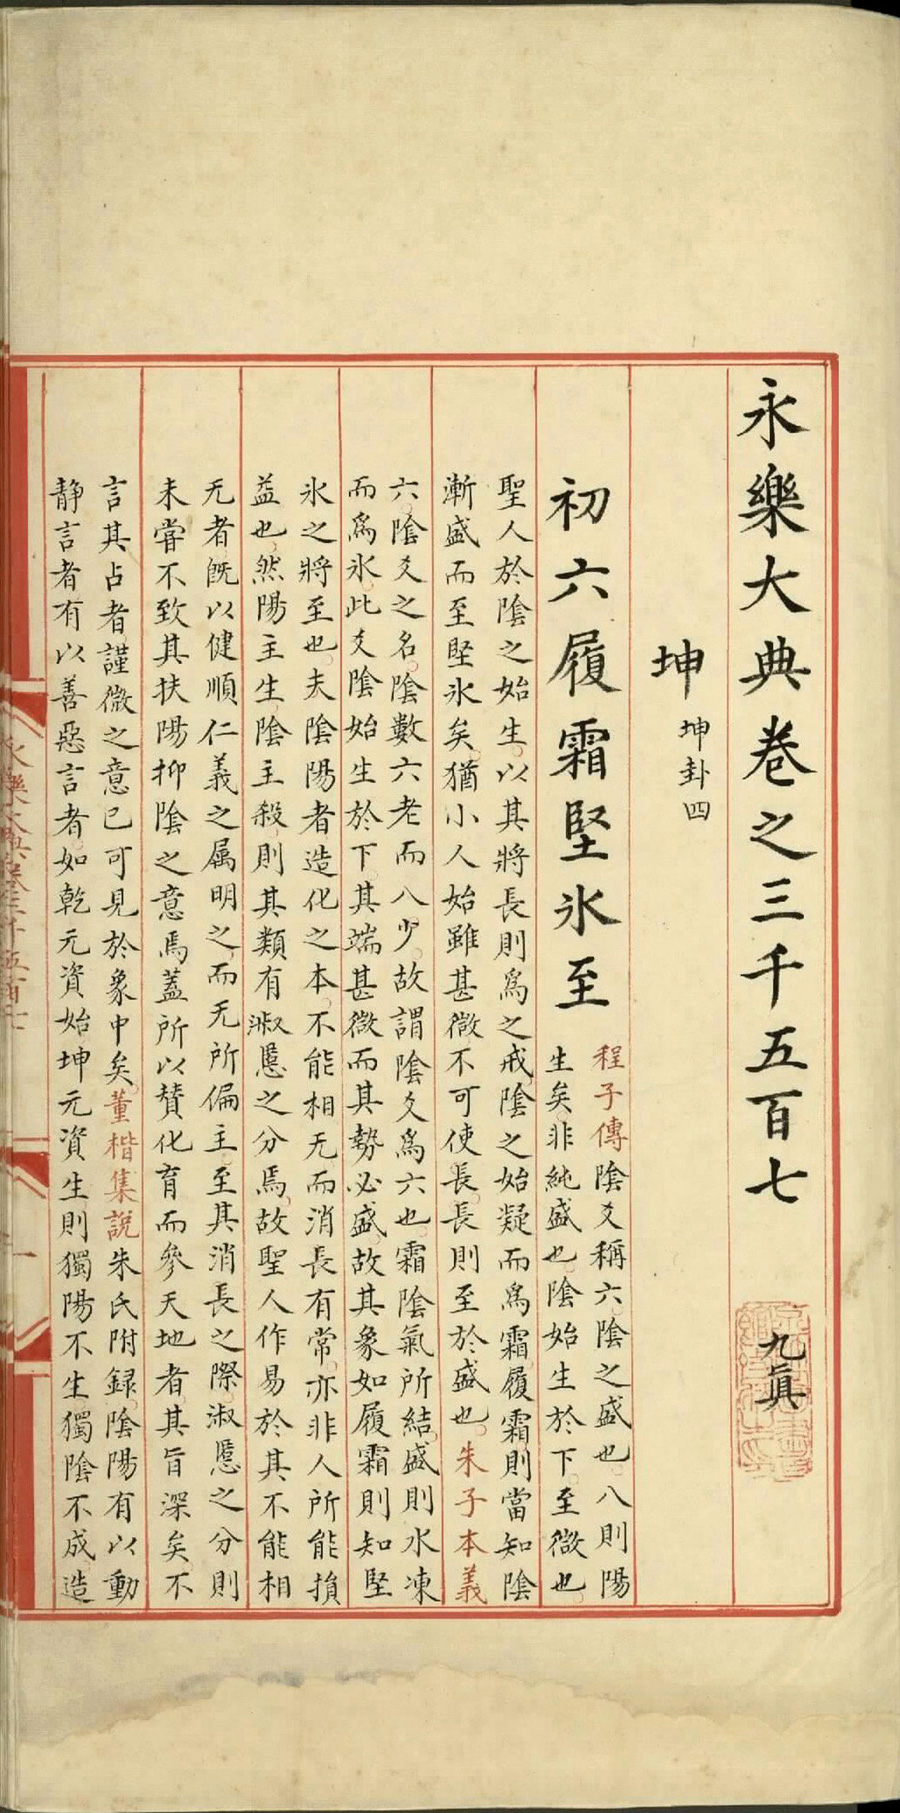 永樂大典卷之三千五百七 九眞
坤 坤卦四
初六履霜堅氷至 程子傳陰爻稱六陰之盛也八則陽
生矣非純盛也陰始生於下至微也
聖人於陰之始生以其將長則爲之戒陰之始凝而爲霜履霜則當知陰
漸盛而至堅氷矣猶小人始雖甚微不可使長長則至於盛也朱子本義
六陰爻之名陰數六老而八少故謂陰爻爲六也霜陰氣所結盛則水凍
而爲氷此爻陰始生於下其端甚微而其勢必盛故其象如履霜則知堅
氷之將至也夫陰陽者造化之本不能相无而消長有常亦非人所能損
益也然陽主生陰主殺則其類有淑慝之分焉故聖人作易於其不能相
无者旣以健順仁義之属明之而无所偏主至其消長之際淑慝之分則
未嘗不致其扶陽抑陰之意焉蓋所以賛化育而參天地者其旨深矣不
言其占者謹微之意已可見於象中矣董楷集說朱氏附録陰陽有以動
静言者有以善惡言者如乾元資始坤元資生則獨陽不生獨陰不成造
永樂大典卷三千五百七
一